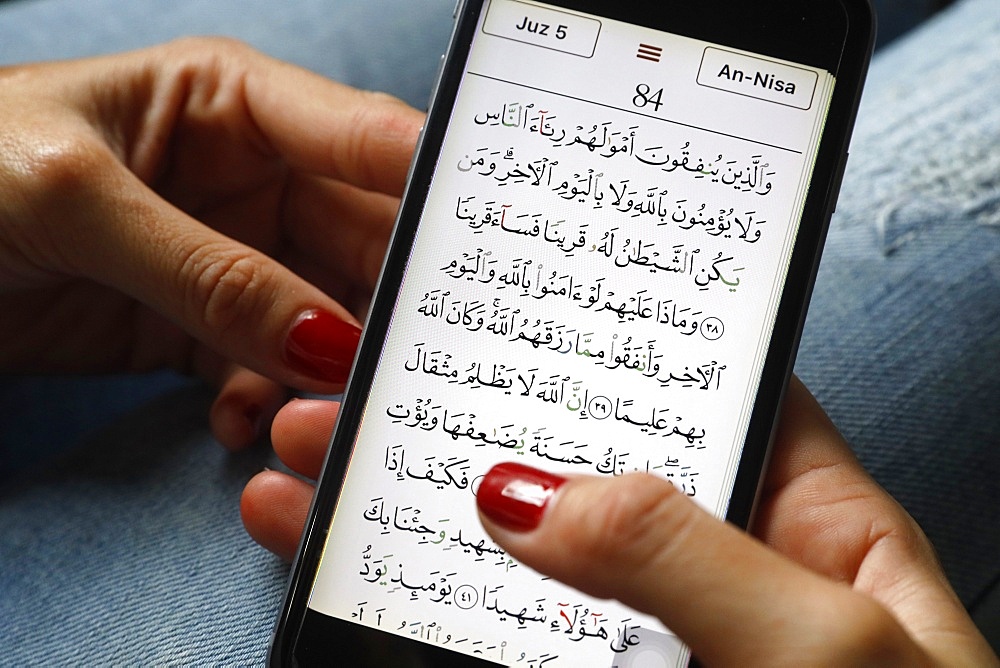 Juz 5
An-Nisa
84
وَٱلَّذِينَ يُنفِقُونَ أَمْوَٰلَهُمْ رِئَآءَ ٱلنَّاسِ
وَلَا يُؤْمِنُونَ بِٱللَّهِ وَلَا بِٱلْيَوْمِ ٱلْءَاخِرِ ۗ وَمَن
يَكُنِ ٱلشَّيْطَٰنُ لَهُۥ قَرِينًا فَسَآءَ قَرِينًا
٣٨ وَمَاذَا عَلَيْهِمْ لَوْ ءَامَنُوا۟ بِٱللَّهِ وَٱلْيَوْمِ
ٱلْءَاخِرِ وَأَنفَقُوا۟ مِمَّا رَزَقَهُمُ ٱللَّهُ ۚ وَكَانَ ٱللَّهُ
بِهِمْ عَلِيمًا ٣٩ إِنَّ ٱللَّهَ لَا يَظْلِمُ مِثْقَالَ
ذَرَّةٍ ۖ تَكُ حَسَنَةً يُضَٰعِفْهَا وَيُؤْتِ
فَكَيْفَ إِذَا
بِشَهِيدٍ وَجِئْنَا بِكَ
عَلَىٰ هَٰٓؤُلَآءِ شَهِيدًا ٤١ يَوْمَئِذٍ يَوَدُّ